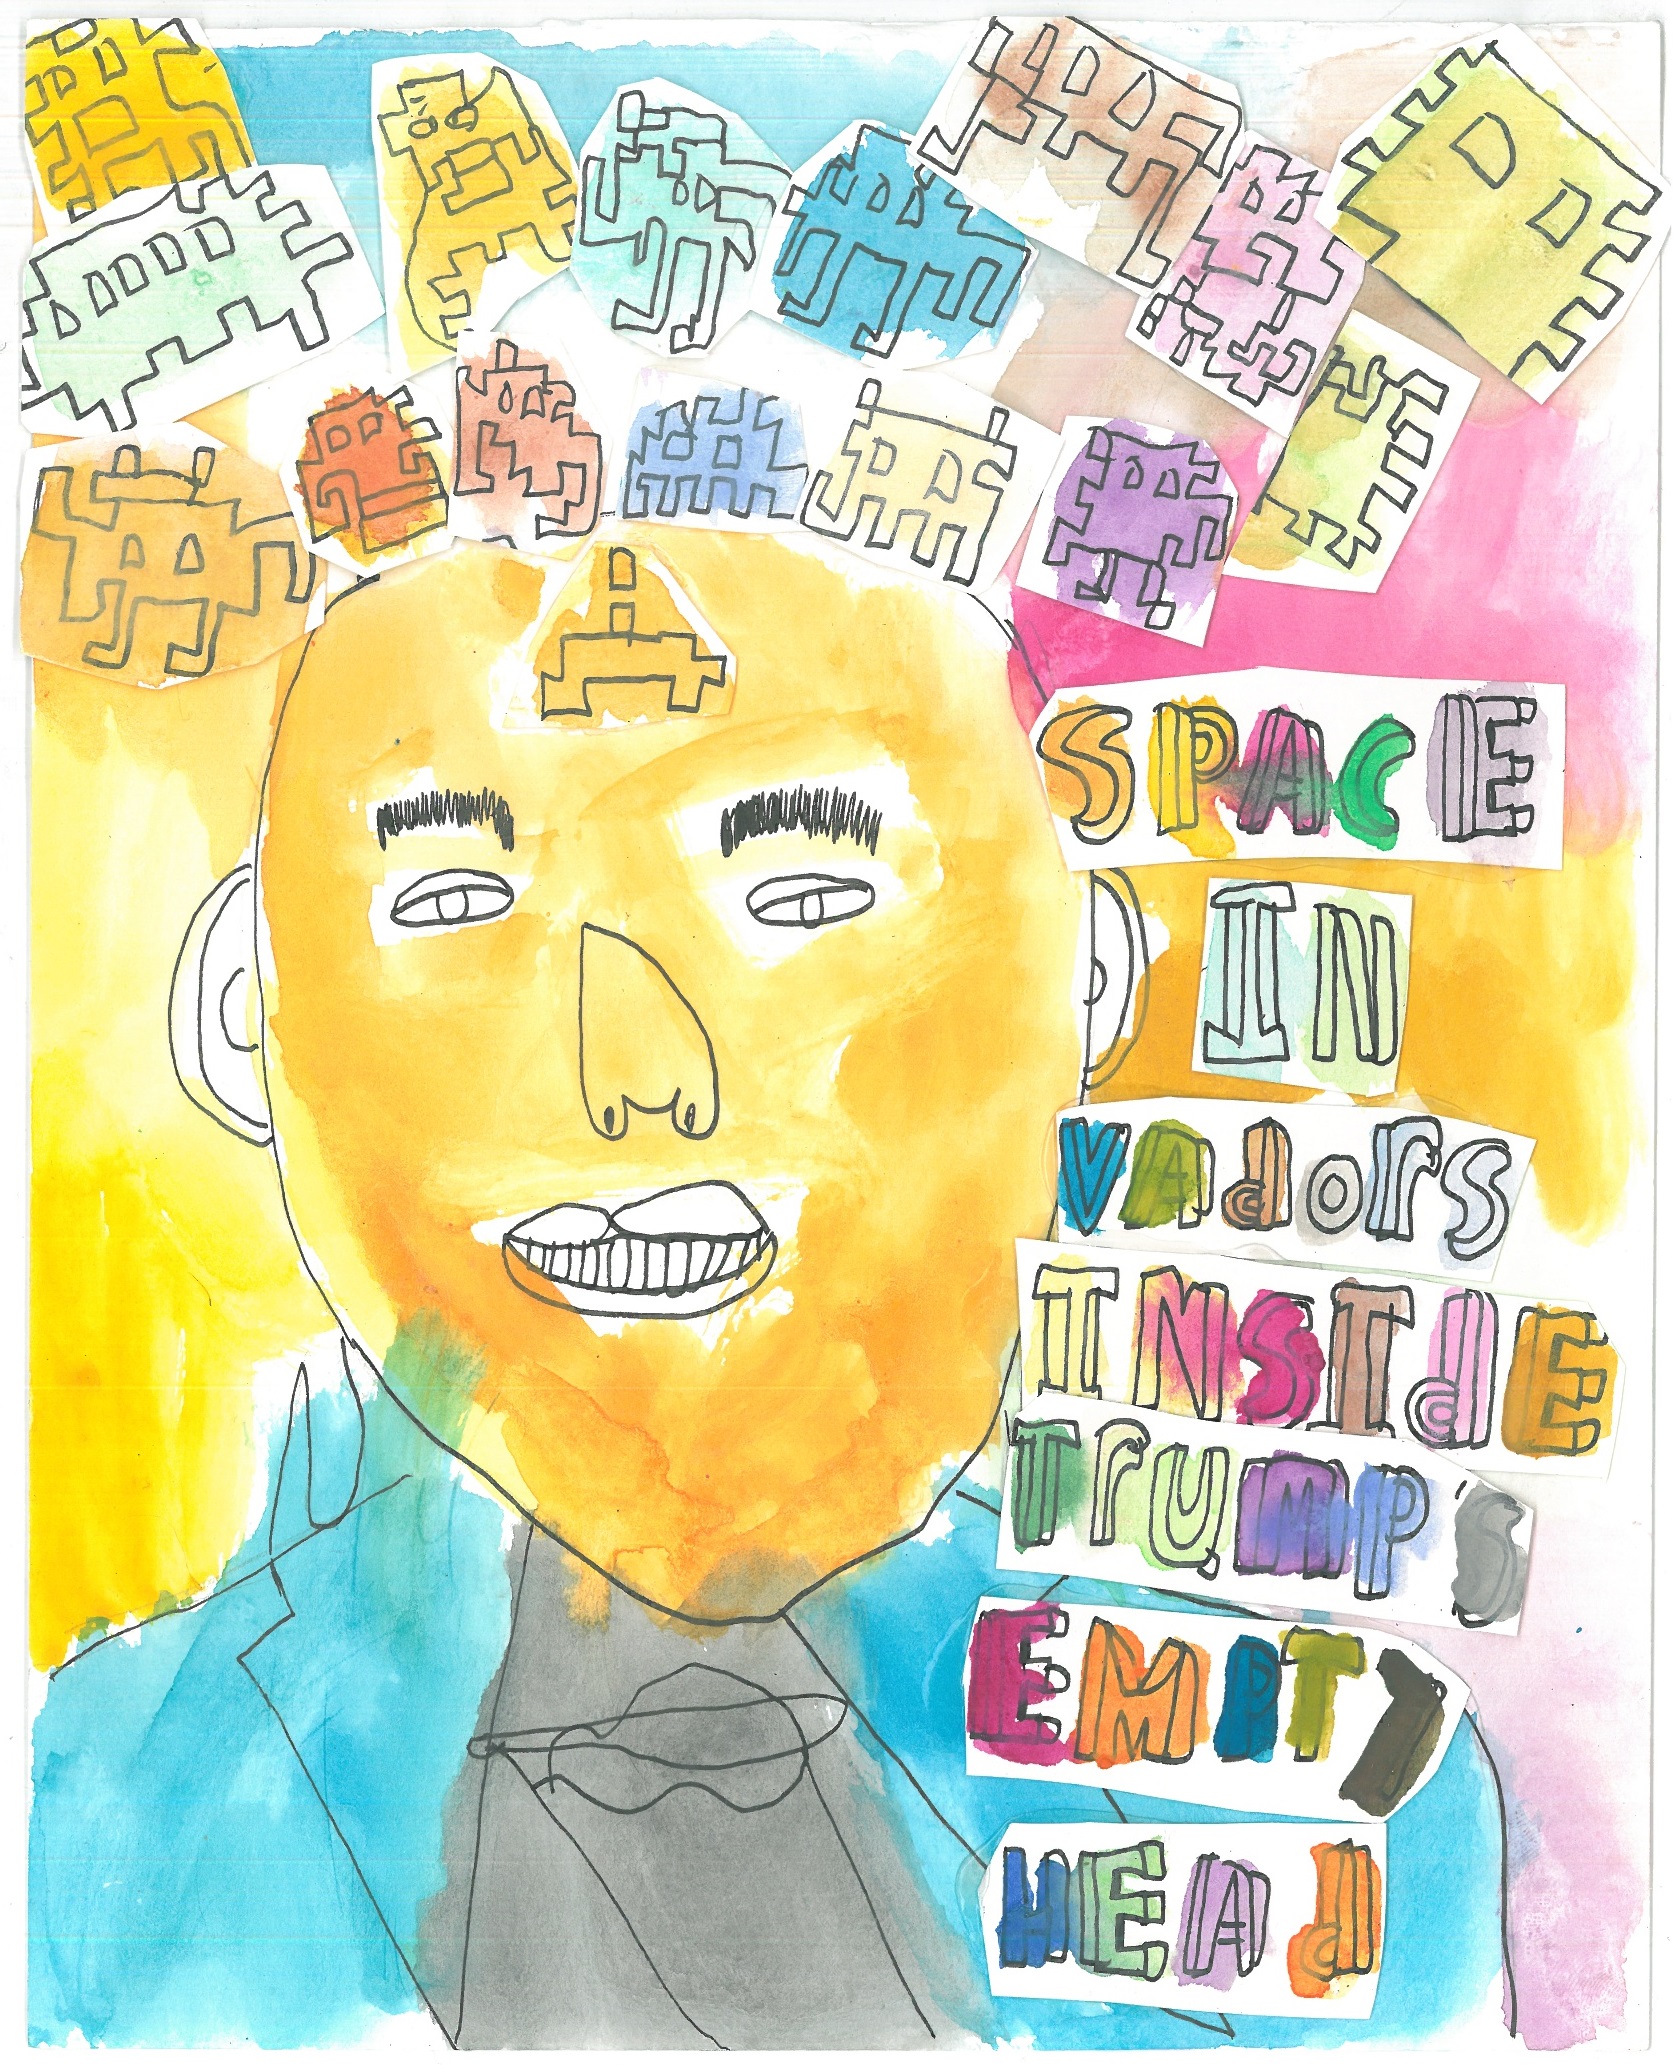 SPACE
IN
VAdors
INSIdE
Trump's
EMPTY
HEAd